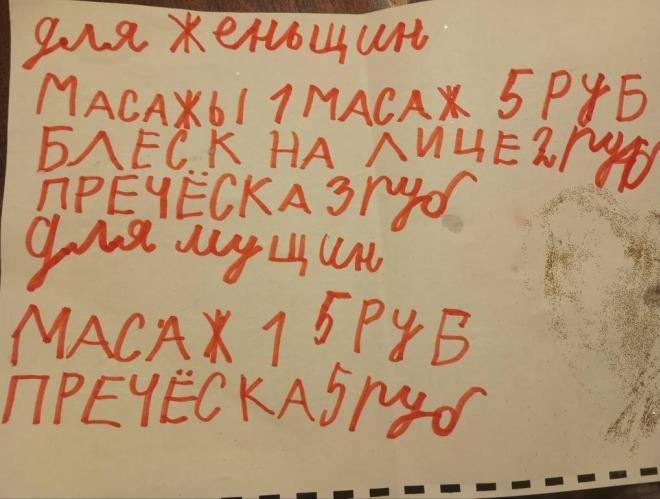 для женьщин
МАСАЖЫ 1 МАСАЖ 5 РУБ
БЛЕСК НА ЛИЦЕ 2 руб
ПРЕЧЁСКА 3 руб
для мущин
МАСАЖ 1 5 РУБ
ПРЕЧЁСКА 5 руб